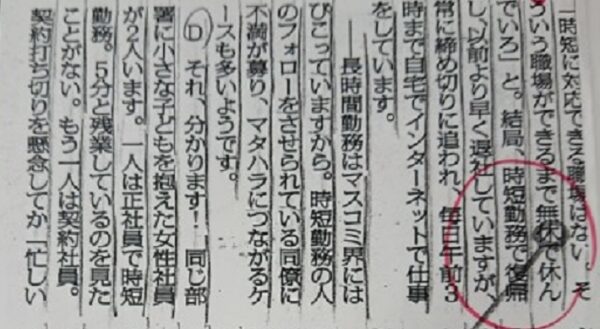 時短に対応できる職場はない。そ
ういう職場ができるまで無休で休ん
でいろ」と。結局、時短勤務で復帰
し、以前より早く退社していますが、
常に締め切りに追われ、毎日午前3
時まで自宅でインターネットで仕事
をしています。
――長時間勤務はマスコミ界には
びこっていますから。時短勤務の人
のフォローをさせられている同僚に
不満が募り、マタハラにつながるケ
ースも多いようです。
Ⓓ それ、分かります! 同じ部
署に小さな子どもを抱えた女性社員
が2人います。一人は正社員で時短
勤務。5分と残業しているのを見た
ことがない。もう一人は契約社員。
契約打ち切りを懸念してか「忙しい